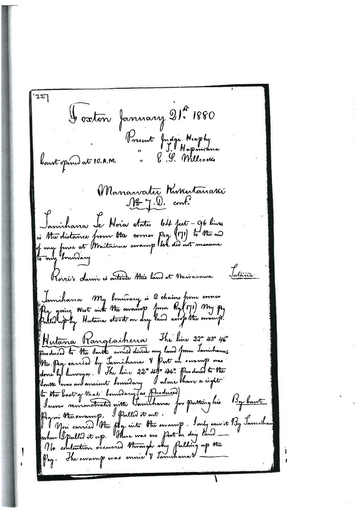 227
Foxton January 21st 1880
Present Judge Heaphy
" T. Hapimana
Court opened at 10. A.M. " E. S. Willcocks
Manawatu Kukutauaki
No 7. D. cont.
Tamihana Te Hoia states 64 feet - 96 links
is the distance from the corner Peg (171) to the end
of my fence at Waitaina swamp but did not measure
to my boundary
claim is outside this land at
Tamihana My boundary is 2 chains from corner
Peg going West into the swamp from Peg (171) My peg
pulled up by Hutana stood on dry land across the swamp.
Hutana Rangiaiheua The line 22° 45' 46"
produced to the back would divide my land from Tamihana
the peg carried by Tamihana & put in swamp was
done by Surveyor. The line 22° 45' 46" produced to the
back was an ancient boundary I alone have a right
to the east of that boundary (as produced)
I never remonstrated with Tamihana for putting his By Court
Peg in the swamp. I pulled it out.
You carried the Peg into the swamp. I only saw it By Tamihana
when I pulled it up. There was no post on dry land
No contention occurred through my pulling up the
Peg. The swamp was mine & Tamihana's